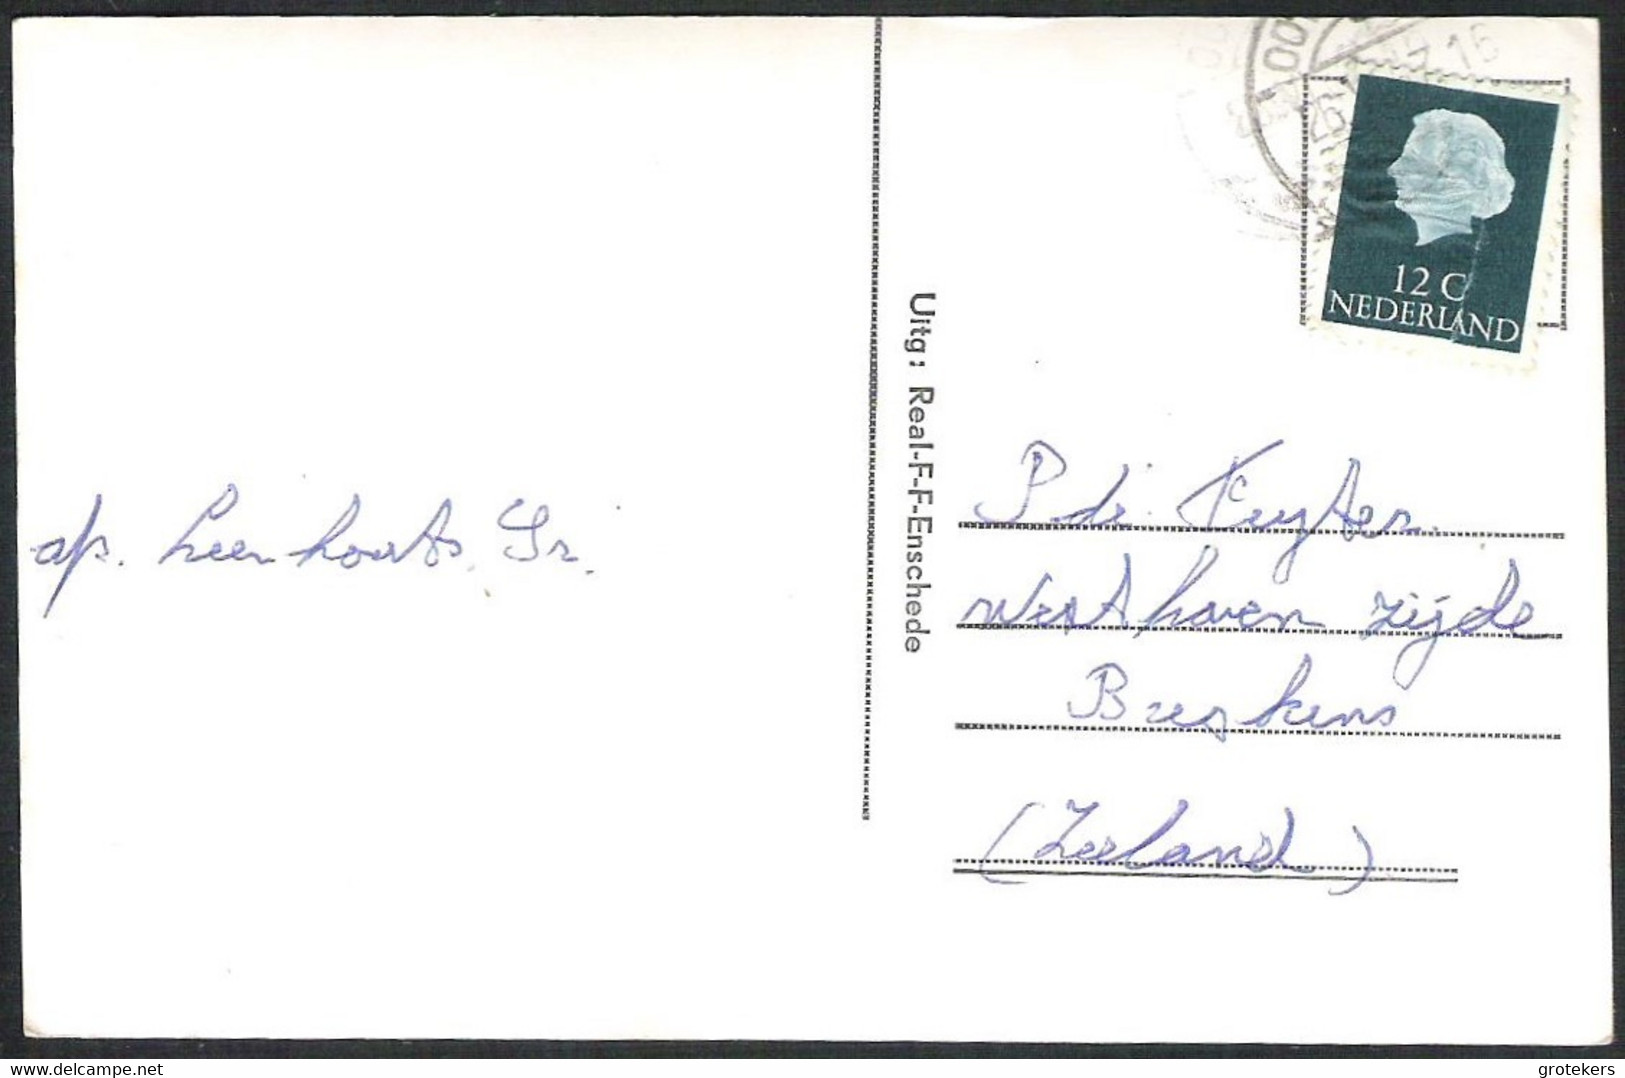 ap. Leenhouts Sr.
Uitg: Real-F-F-Enschede
12 C
NEDERLAND
P de Ruyter
West haven zijde
Breskens
(Zeeland)
delcampe.net
grotekers